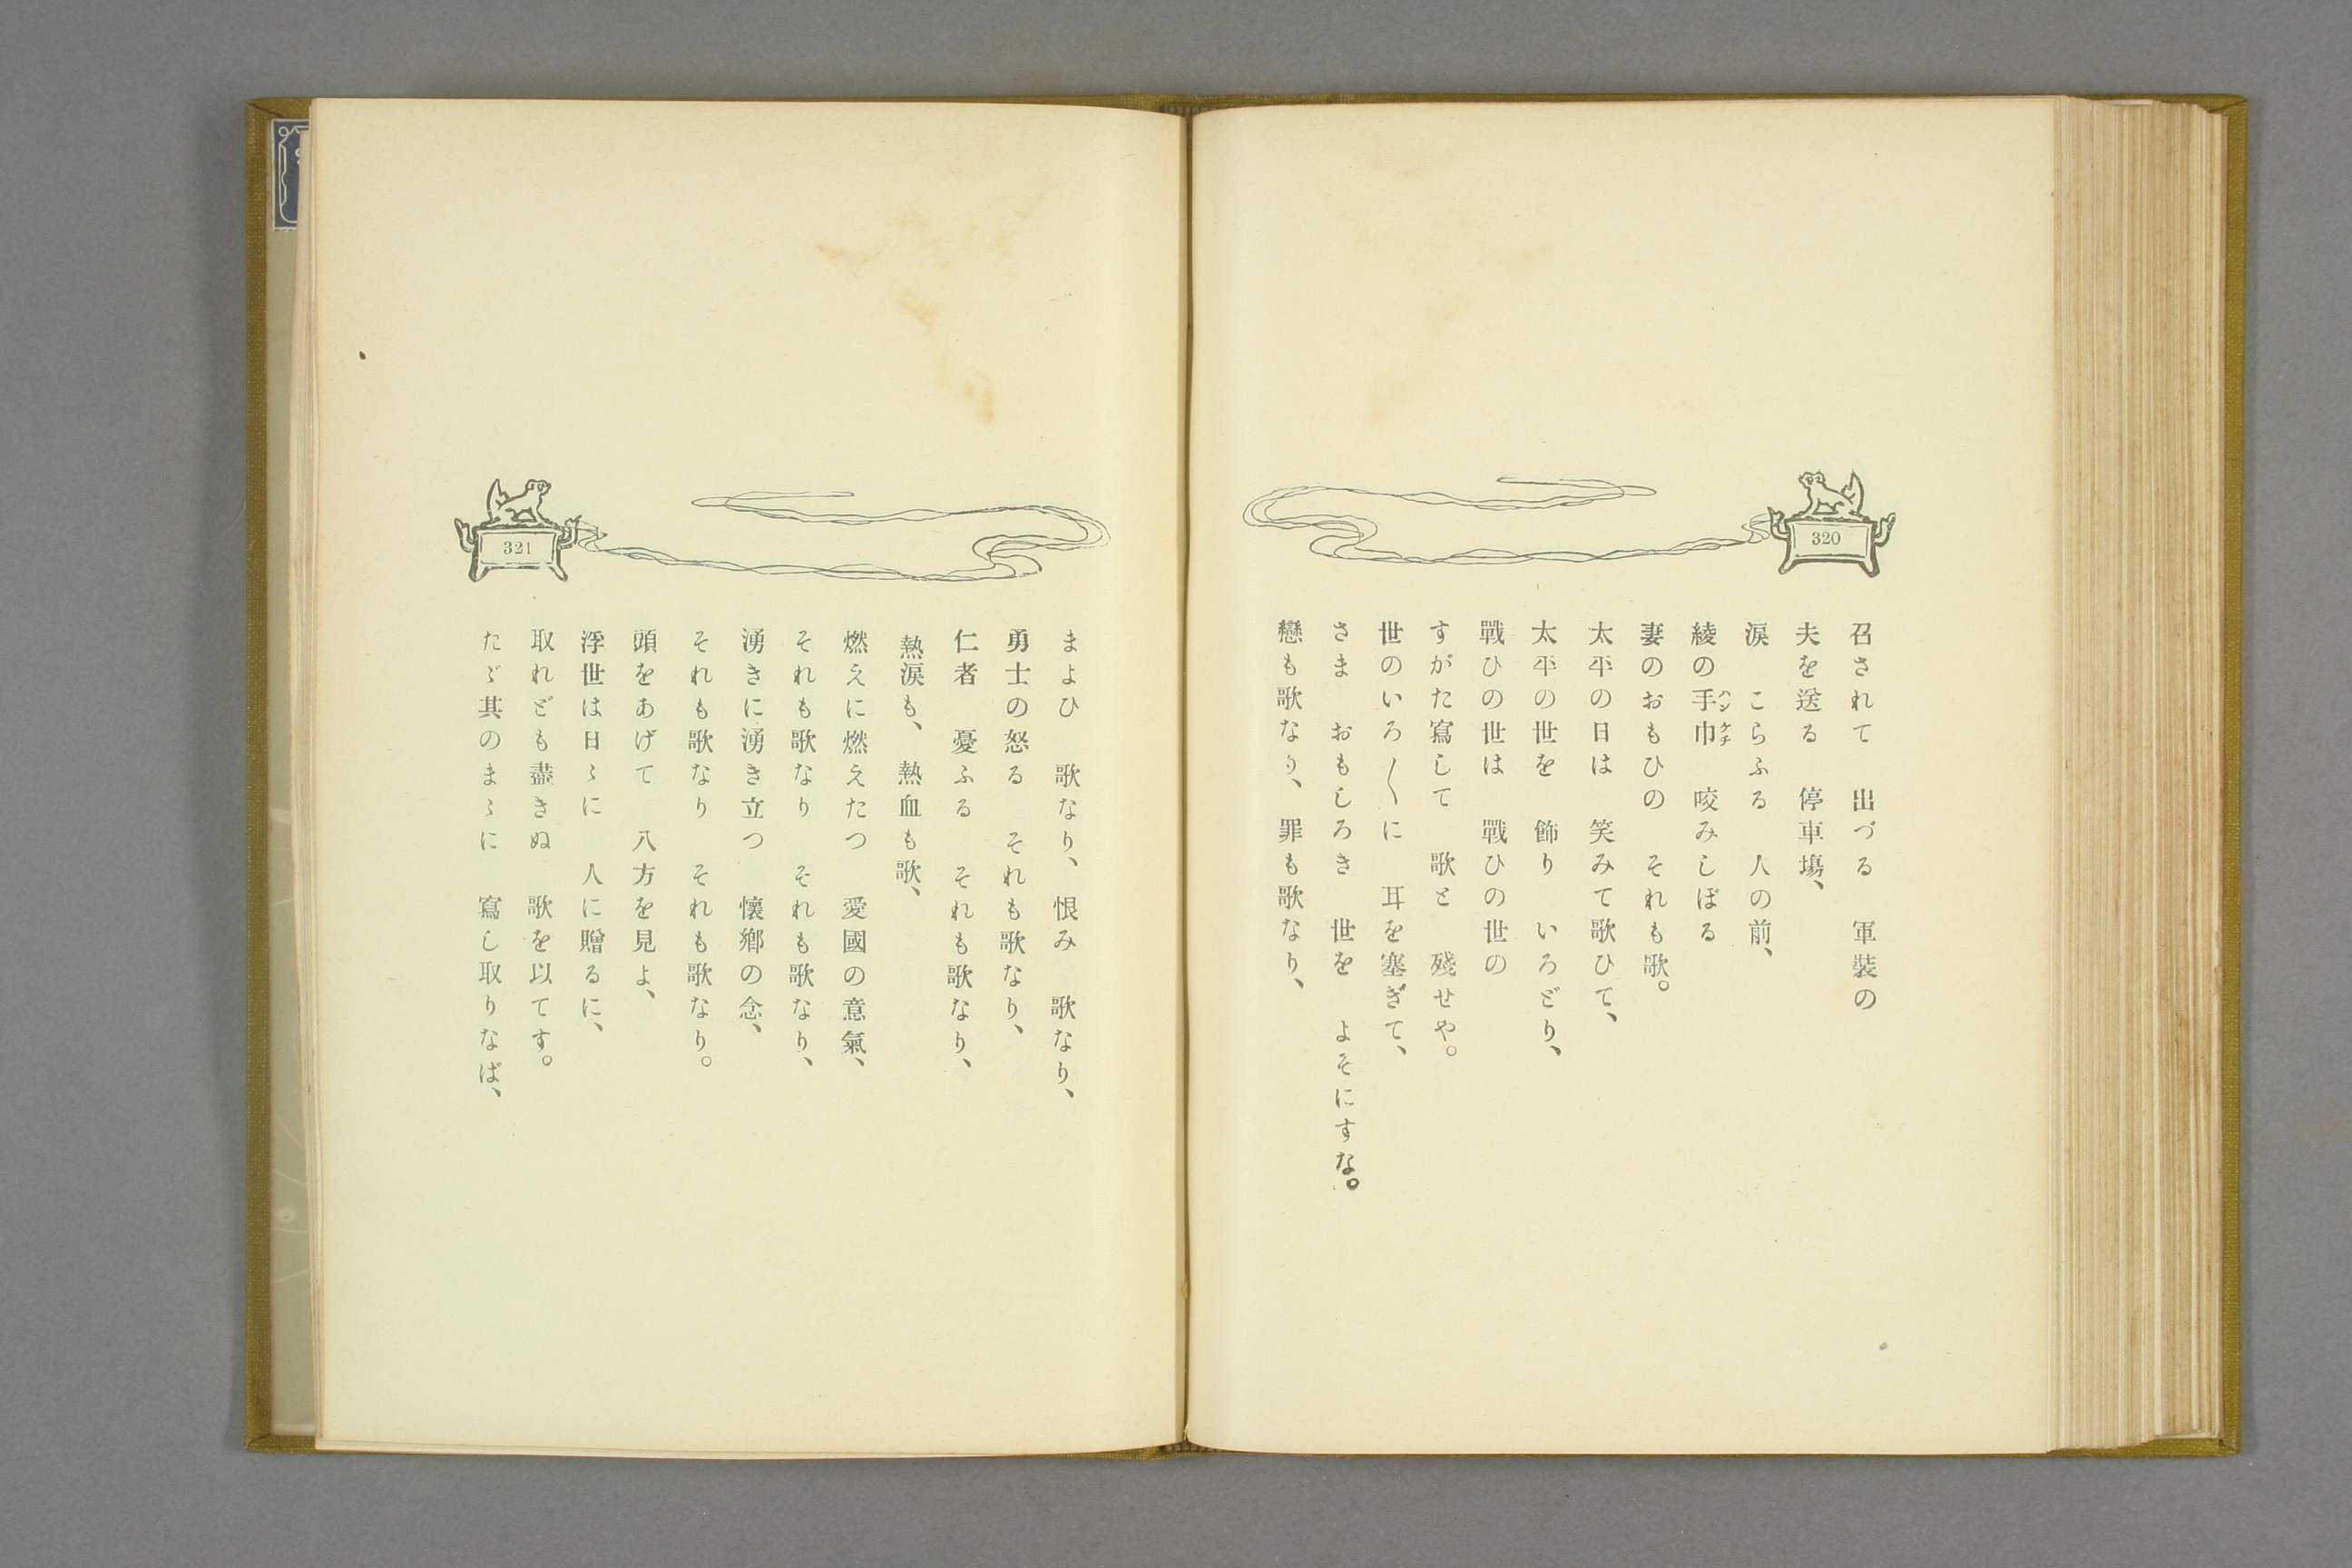 320
召されて　出づる　軍裝の
夫を送る　停車塲、
涙　こらふる　人の前、
綾の手巾　咬みしぼる
ハンケチ
妻のおもひの　それも歌。
太平の日は　笑みて歌ひて、
太平の世を　飾り　いろどり、
戰ひの世は　戰ひの世の
すがた寫して　歌と　殘せや。
世のいろ〱に　耳を塞ぎて、
さま　おもしろき　世を　よそにすな。
戀も歌なり、罪も歌なり、
321
まよひ　歌なり、恨み　歌なり、
勇士の怒る　それも歌なり、
仁者　憂ふる　それも歌なり、
熱涙も、熱血も歌、
燃えに燃えたつ　愛國の意氣、
それも歌なり　それも歌なり、
湧きに湧き立つ　懷鄕の念、
それも歌なり　それも歌なり。
頭をあげて　八方を見よ、
浮世は日ゝに　人に贈るに、
取れども盡きぬ　歌を以てす。
たゞ其のまゝに　寫し取りなば、